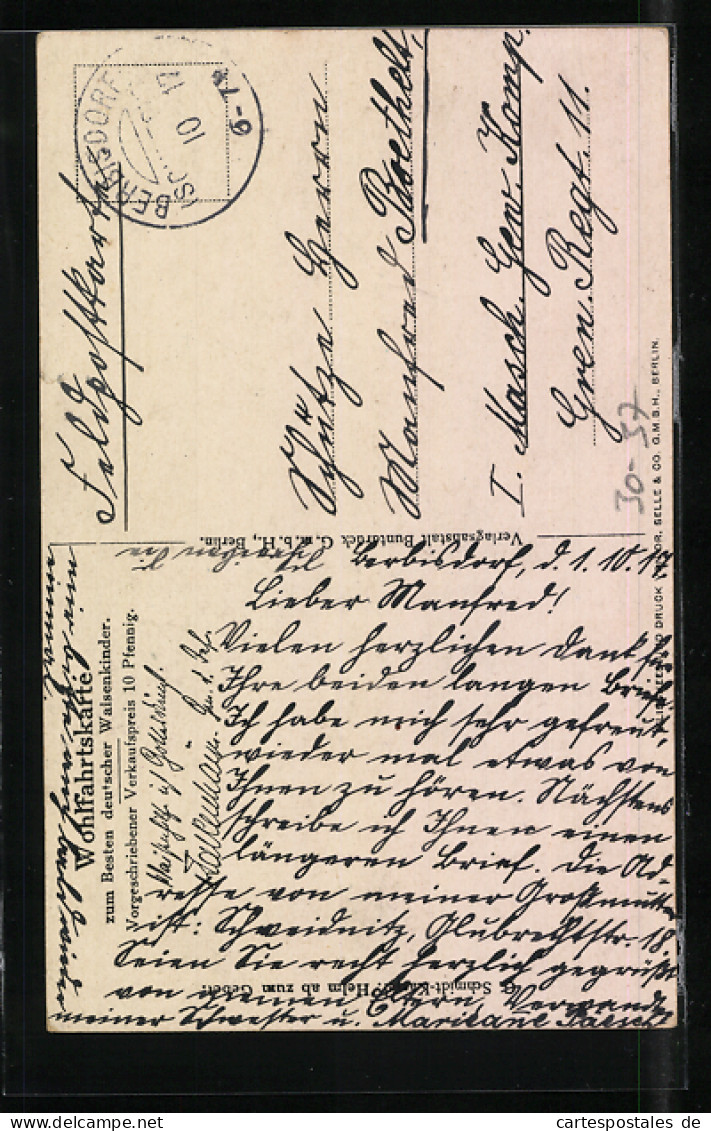 BERBISDORF
1.10.17
6-7N
Feldpostkarte
Schütze Herrn
Manfred Roethelt,
I. Masch. Gew. Komp.
Gren. Regt. 11.
30-
57
Verlagsanstalt Buntdruck G. m. b. H., Berlin.
SELLE & CO. G.M.B.H., BERLIN.
Wohlfahrtskarte
zum Besten deutscher Waisenkinder.
Vorgeschriebener Verkaufspreis 10 Pfennig.
Helm ab zum Gebet.
Berbisdorf, d. 1.10.17
Lieber Manfred!
Vielen herzlichen Dank für
Ihre beiden langen Briefe.
Ich habe mich sehr gefreut,
wieder mal etwas von
Ihnen zu hören. Nächstens
schreibe ich Ihnen einen
längeren Brief. Die Ad-
resse von meiner Großmutter
ist: Schweidnitz, 18.
Seien Sie recht herzlich gegrüßt
von meinen Eltern, Verwandt.
meiner Schwester u. Marianne
Schreiben Sie
mir bitte auch bald wieder
einmal.
cartespostales de